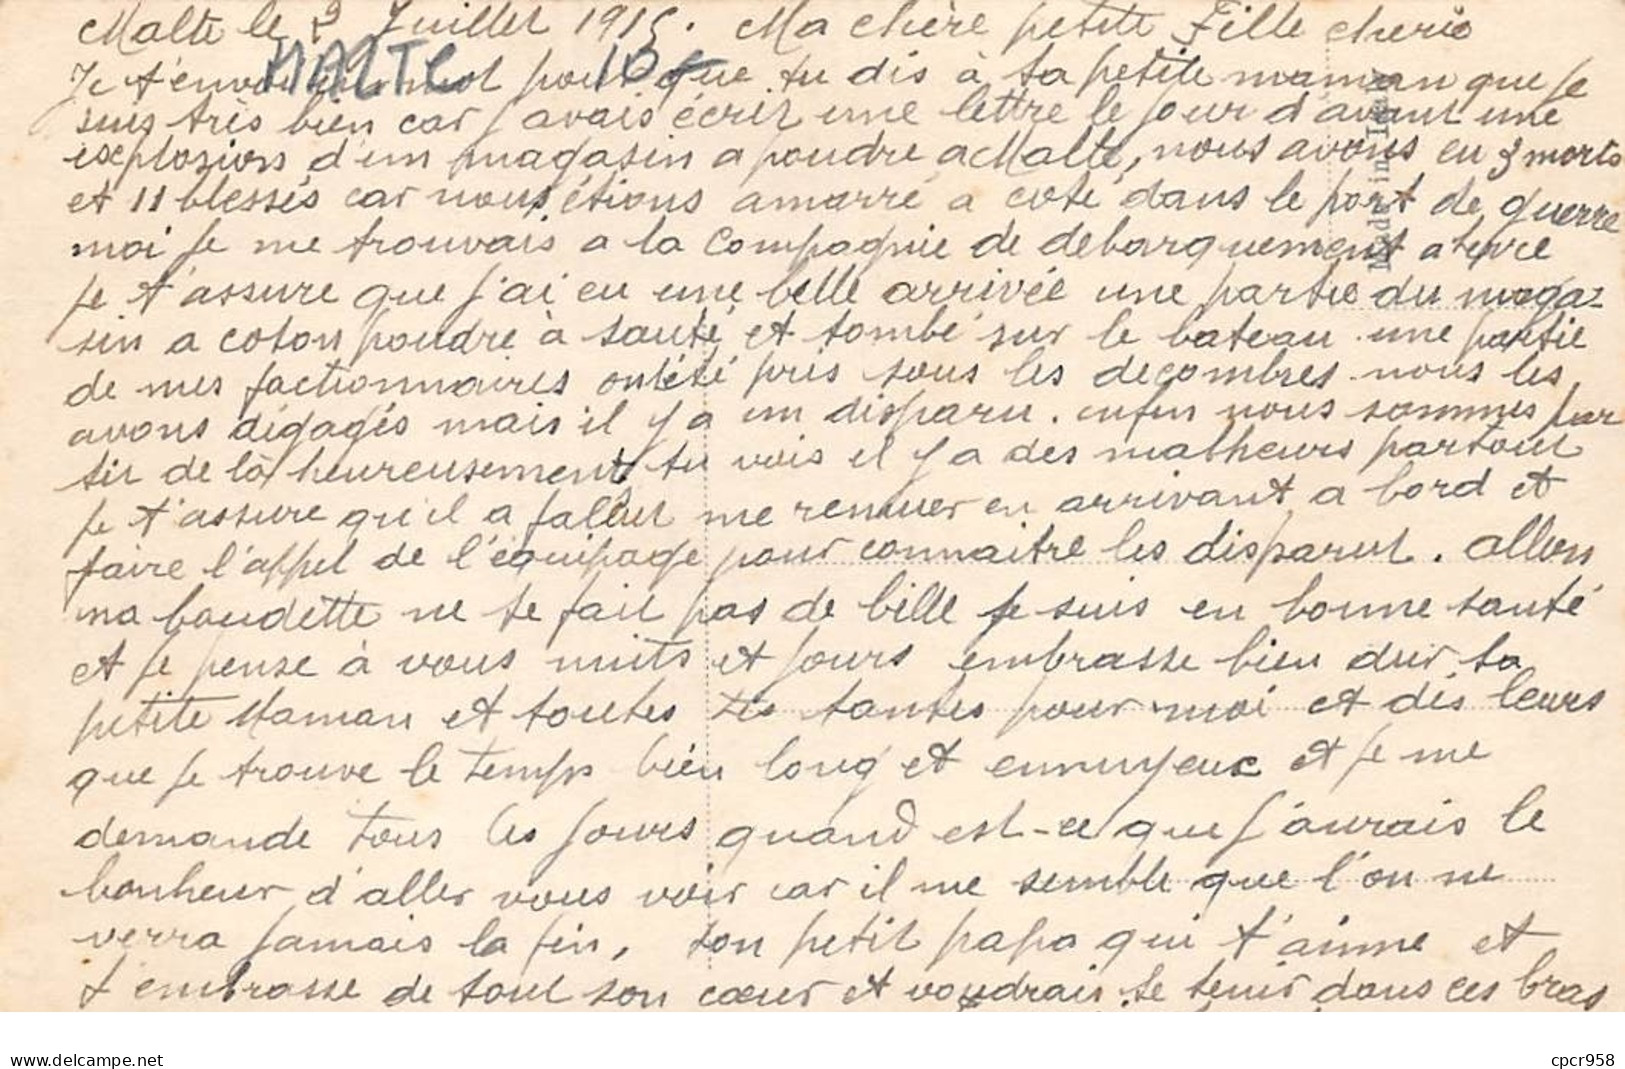 Malte le 2 Juillet 1915. Ma chère petite Fille cherie
MALTE 10
Je t'envoi un mot pour que tu dis à ta petite maman que je
suis très bien car j'avais écrit une lettre le jour d'avant une
explosion d'un magasin a poudre a Malte, nous avons eu 3 morts
et 11 blessés car nous étions amarré a coté dans le port de guerre
moi je me trouvais a la Compagnie de debarquement a terre
je t'assure que j'ai eu une belle arrivée une partie du maga-
sin a coton poudre à sauté et tombé sur le bateau une partie
de mes factionnaires ont été pris sous les decombres nous les
avons dégagés mais il y a un disparu. enfin nous sommes par
tir de là heureusement tu vois il y a des malheurs partout
je t'assure qu'il a fallut me remuer en arrivant a bord et
faire l'appel de l'équipage pour connaitre les disparut. allons
ma baudette ne te fait pas de bille je suis en bonne santé
et je pense à vous nuits et jours embrasse bien dur ta
petite Maman et toutes tes tantes pour moi et dis leurs
que je trouve le temps bien long et ennuyeux et je me
demande tous les jours quand est-ce que j'aurais le
bonheur d'aller vous voir car il me semble que l'on ne
verra jamais la fin, ton petit papa qui t'aime et
t'embrasse de tout son cœur et voudrais te tenir dans ces bras
Made in
cpcr958
delcampe.net